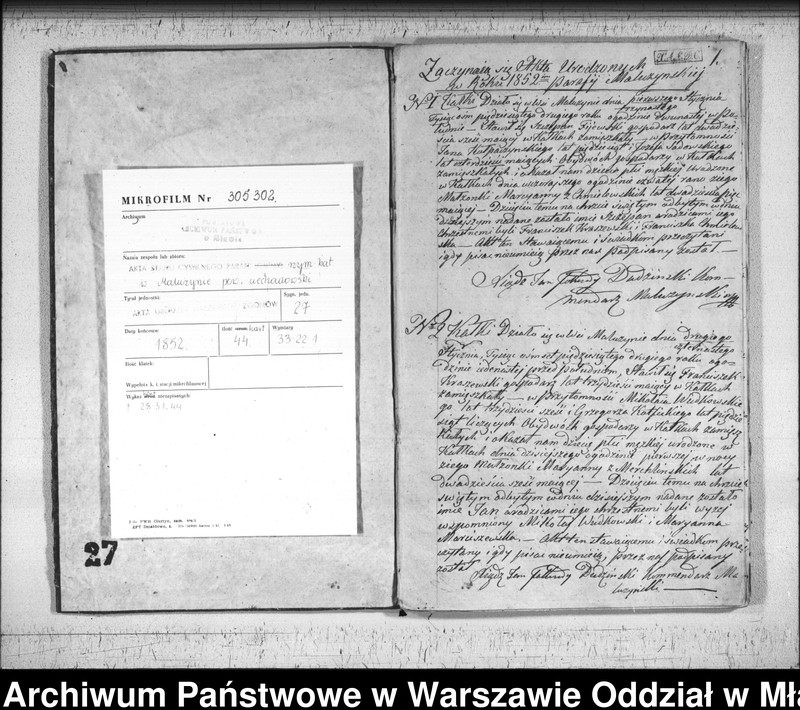 MIKROFILM Nr 305302
Archiwum
Nazwa zespołu lub zbioru:
AKTA STANU CYWILNEGO PARAFII rzym kat
w Malużynie pow. ciechanowski
Tytuł jednostki:
Sygn. jedn.
27
Daty końcowe:
1852
Ilość kart
44
Wymiary
33 22 1
Ilość klatek:
Wypełnia k. t. stacji mikrofilmowej
Wykaz
27
1.
Zaczynają się Akta Urodzonych
w Roku 1852 Parafii Malużynskiej
No 1 Kątki Działo się w Wsi Malużynie dnia pierwszego Stycznia
trzynastego
Tysiąc ośm pięćdziesiątego drugiego roku o godzinie dwunastej w Po-
łudnie – Stawił się Szczepan Fijewski gospodarz lat dwadzie-
ścia sześć mający w Kątkach zamieszkały – w przytomności
Jana lat pięćdziesiąt i Józefa Sadowskiego
lat czterdzieści mających Obydwóch gospodarzy w Kątkach
zamieszkałych i okazał nam dziecię płci męzkiej urodzone
w Kątkach dnia wczorajszego o godzinie czwartej rano z jego
Małżonki Maryanny z Chmielewskich lat dwadzieścia pięć
mającej – Dziecięciu temu na chrzcie świętym odbytym w dniu
dzisiejszym nadane zostało imie Szczepan a rodzicami jego
Chrzestnemi byli Franciszek Kraszewski i Franciszka
– Akt ten stawającemu i świadkom przeczytany
i gdy pisać nieumieją przez nas podpisany został –
Xiądz Jan Dudzinski Kom-
mendarz Malużynski
No 2 Kątki Działo się w Wsi Malużynie dnia drugiego
czternastego
Stycznia, Tysiąc ośmset pięćdziesiątego drugiego roku o go-
dzinie jedenastej przed południem, Stawił się Franciszek
Kraszewski gospodarz lat trzydzieści mający w Kątkach
zamieszkały – w przytomności Mikołaja Wudkowskie-
go lat trzydzieści sześć i Grzegorza lat pięćdzie-
siąt liczących Obydwóch gospodarzy w Kątkach zamiesz-
kałych i okazał nam dziecię płci męzkiej urodzone w
Kątkach dnia dzisiejszego o godzinie pierwszej w nocy
z jego Małżonki Maryanny z Merchlinskich lat
dwadzieścia sześć mającej – Dziecięciu temu na chrzcie
świętym odbytym w dniu dzisiejszym nadane zostało
imie Jan a rodzicami jego chrzestnemi byli wyżej
wspomniony Mikołaj Wudkowski i Maryanna
Marciszewska – Akt ten stawającemu i świadkom prze-
czytany i gdy pisac nieumieją, przez nas podpisany
został
Xiądz Jan Dudzinski Kommendarz Ma-
lużynski
Archiwum Państwowe w Warszawie Oddział w Mła